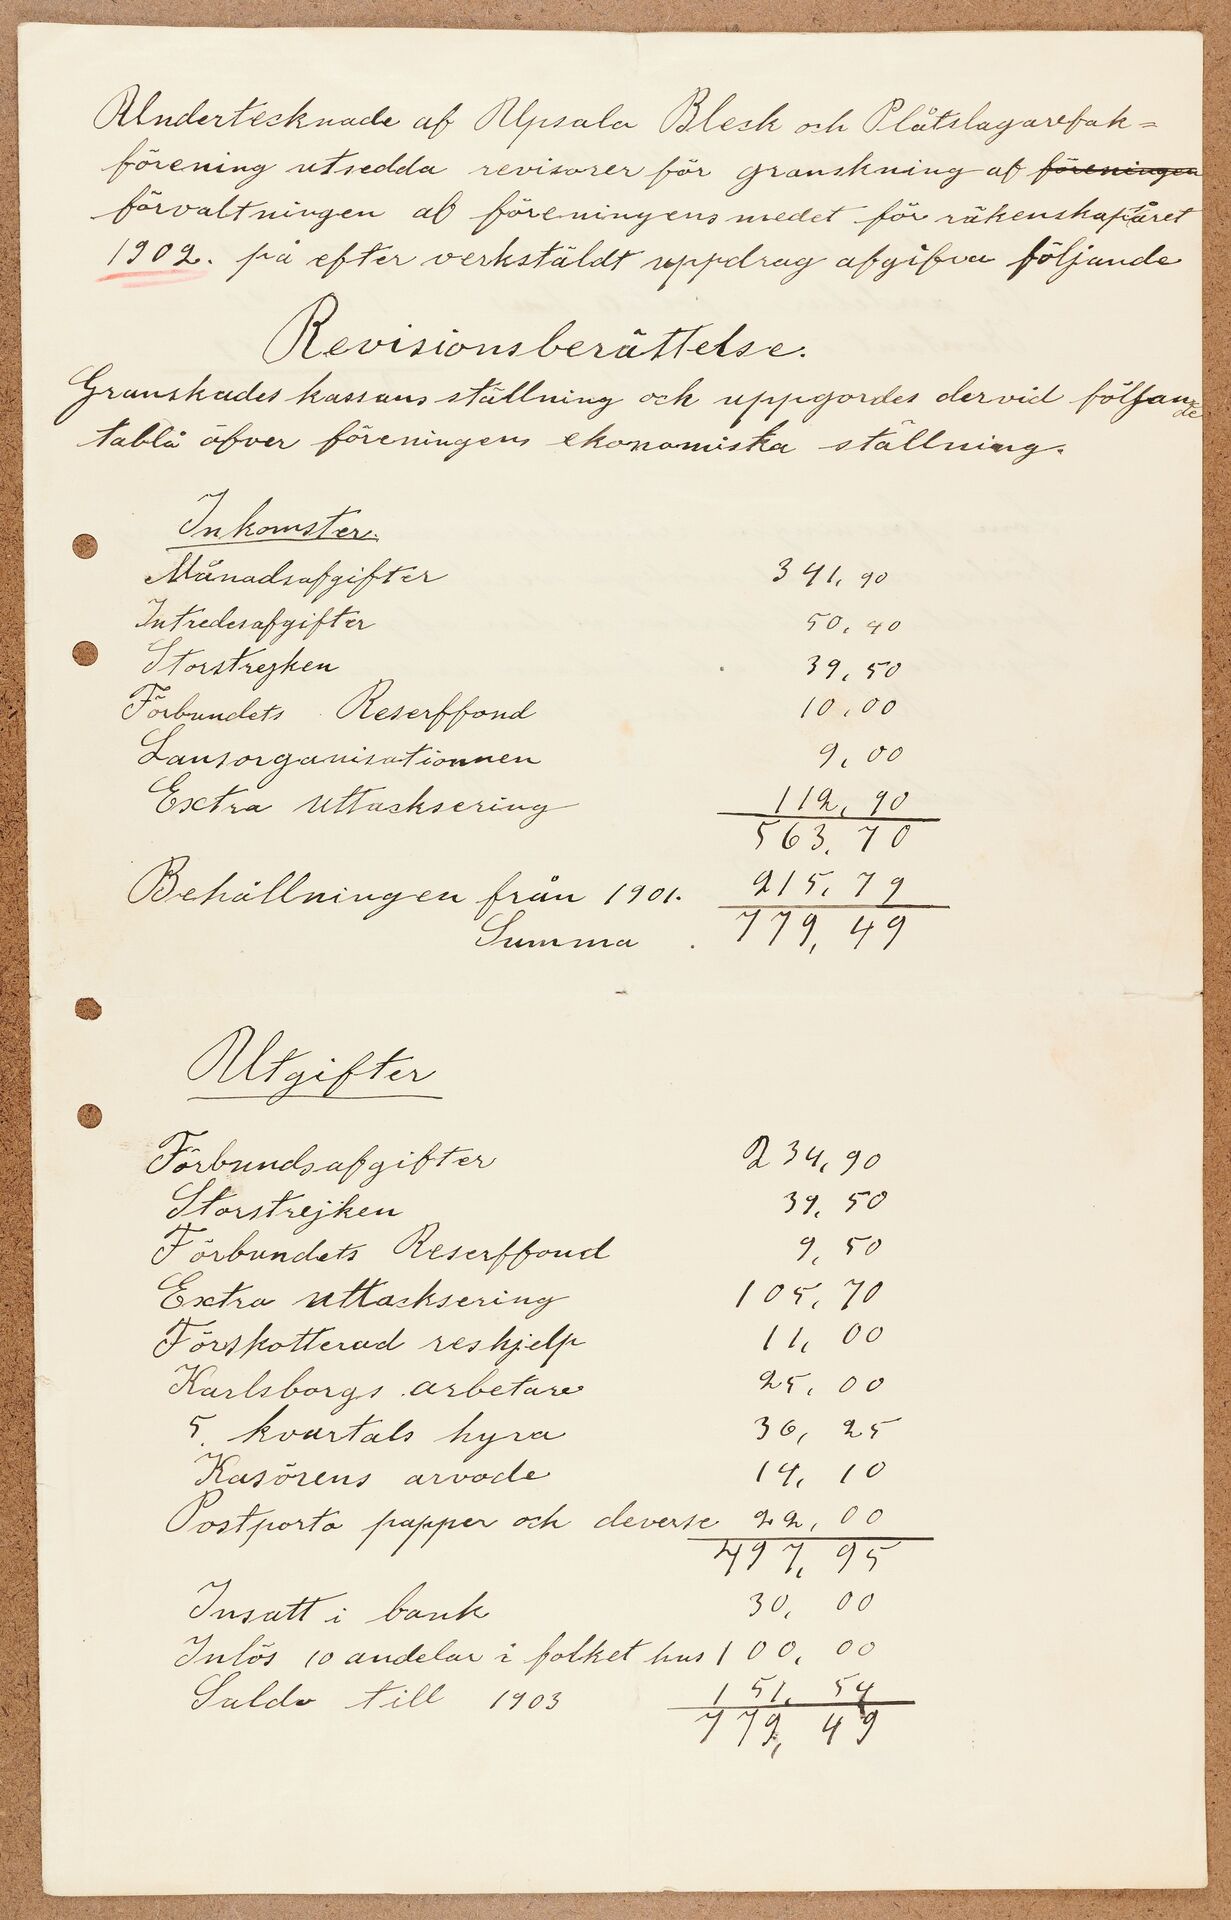 Undertecknade af Upsala Bleck och Plåtslagarefak=
förening utsedda revisorer för granskning af föreningen
förvaltningen af föreningens medel för räkenskapsåret
1902. på efter verkstäldt uppdrag afgifva följande
Revisionsberättelse.
Granskades kassans ställning och uppgordes dervid följande
tablå öfver föreningens ekonomiska ställning.
Inkomster.
Månadsafgifter 341,90
Intredesafgifter 50,40
Storstrejken 39,50
Förbundets Reserffond 10,00
Lansorganisationnen 9,00
Extra uttacksering 112,90
563,70
Behållningen från 1901. 215,79
Summa 779,49
Utgifter
Förbundsafgifter 234,90
Storstrejken 39,50
Förbundets Reserffond 9,50
Extra uttacksering 105,70
Förskotterad reshjelp 11,00
Karlsborgs arbetare 25,00
5. kvartals hyra 36,25
Kasörens arvode 14,10
Postporto papper och deverse 22,00
497,95
Insatt i bank 30,00
Inlös 10 andelar i folket hus 100,00
Saldo till 1903 151,54
779,49